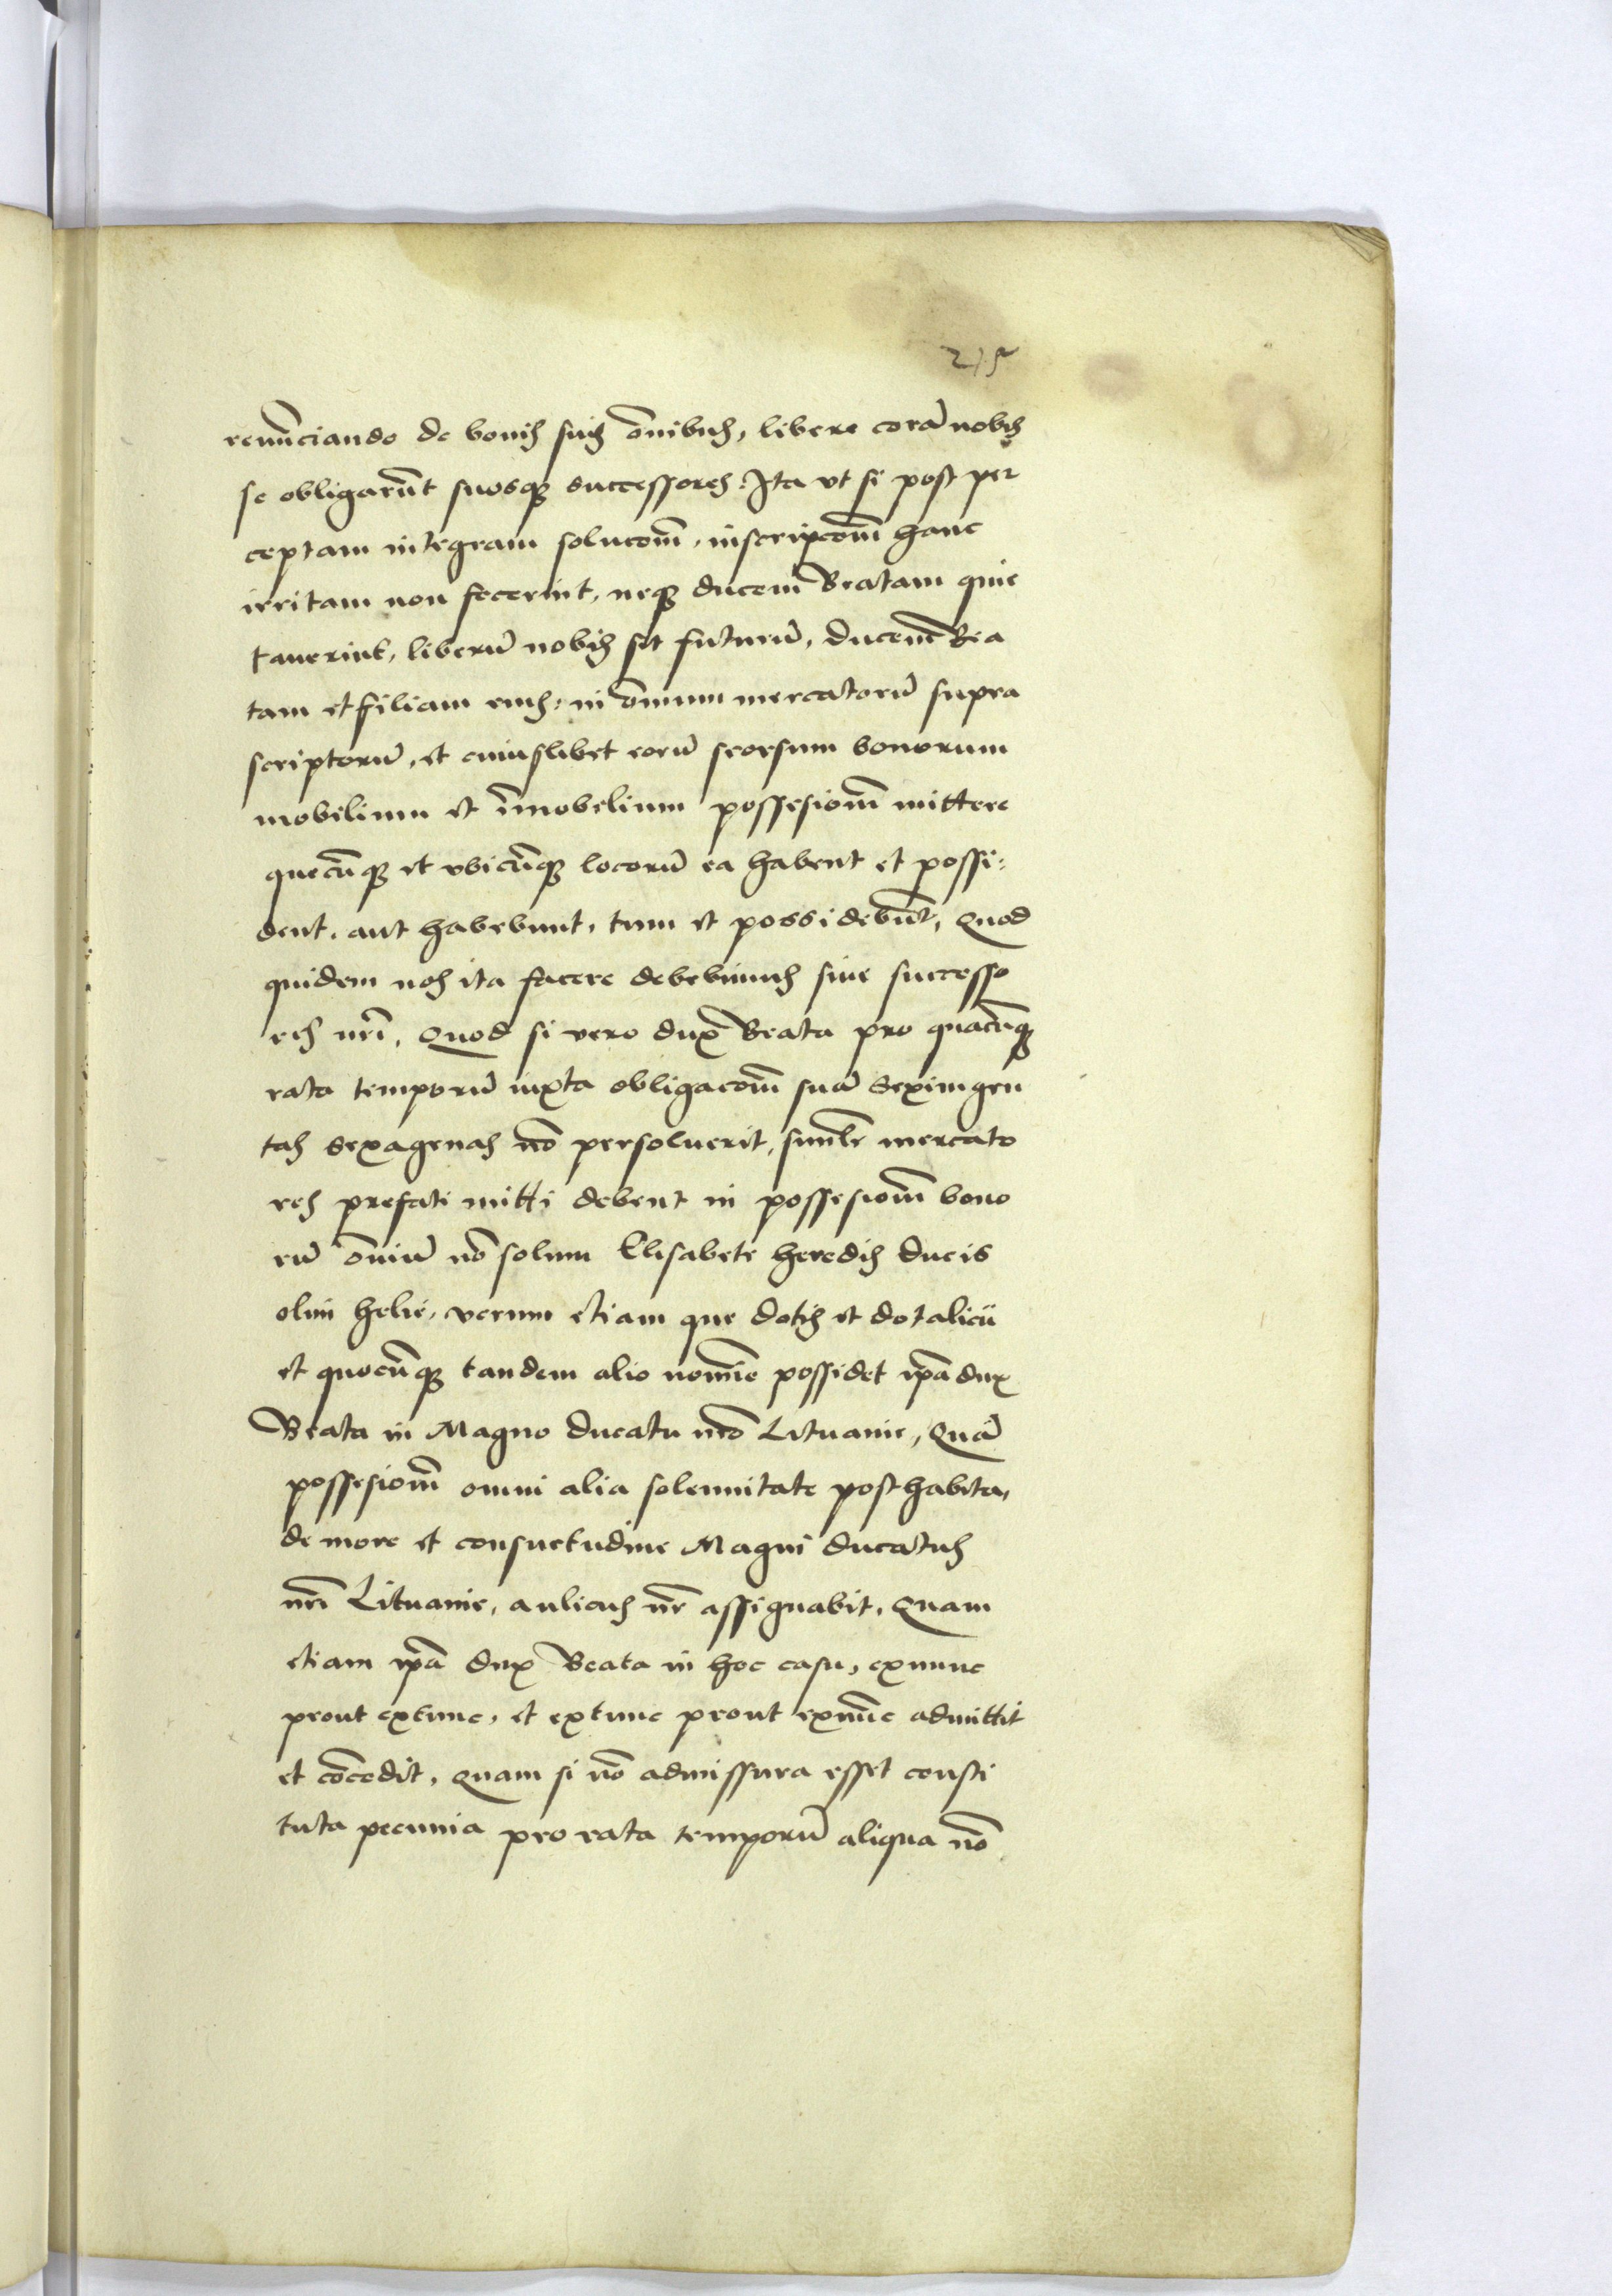 275
renūciando de bonis suis oīnibus, libere corā nobis
se obligarūt suosq3 successores. Ita vt si post per
ceptam integram solucoīm, inscripcoīm hanc
irritam non fecerint, neq3 ducem Beatam quie
tauerint, liberū nobis sit futurū, ducem Bea
tam et filiam eius, in oīnium mercatorū supra
scriptorū, et cuiuslibet eorū seorsum bonorum
mobilium et īmobilium possesioīm mittere
quecūq3 et vbicūq3 locorū ea habent et possi:
dent, aut habebunt, tum et possidebūt, Quod
quidem nos ita facere debebimus siue successo
res nrī, Quod si vero dux Beata pro quacūq3
rata temporū iuxta obligacoīm suā sexingen
tas sexagenas nō persoluerit, simlr mercato
res prefati mitti debent in possesioīm bono
rū oīniū nō solum Elisabete heredis ducis
olim helie, verum etiam que dotis et dotalicii
et quocūq3 tandem alio nomīe possidet ip̄a dux
Beata in Magno ducatu nrō Lituanie, Quā
possesioīm omni alia solennitate posthabita,
de more et consuetudine Magni ducatus
nrī Lituanie, aulicus nr̄ assignabit, Quam
etiam ip̄a dux Beata in hoc casu, exnunc
prout extunc, et extunc prout exnūc admittit
et cōcedit, Quam si nō admissura esset consti
tuta pecunia pro rata temporū aliqua nō